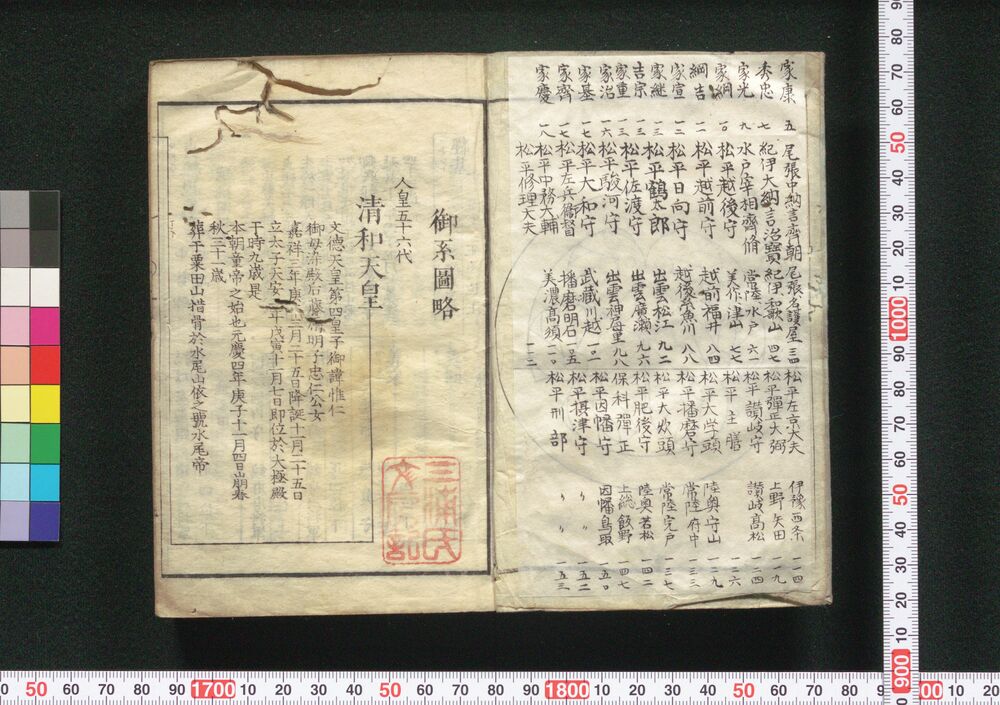 家康 五 尾張中納言齊朝 尾張名護屋 三四 松平左京大夫 伊豫西条 一一四
秀忠 七 紀伊大納言治寶 紀伊和歌山 四七 松平彈正大弼 上野矢田 一一九
家光 九 水戸宰相齊脩 常陸水戸 六一 松平讃岐守 讃岐高松 一二四
家綱 一〇 松平越後守 美作津山 七七 松平主膳 一二六
綱吉 一一 松平越前守 越前福井 八四 松平大学頭 陸奥守山 一二九
家宣 一二 松平日向守 越後糸魚川 八八 松平播磨守 常陸府中 一三三
家継 一三 松平鶴太郎 出雲松江 九二 松平大炊頭 常陸宍戸 一三七
吉宗 一三 松平佐渡守 出雲廣瀬 九六 松平肥後守 陸奥若松 一四二
家重 一三 松平駿河守 出雲神母里 九八 保科彈正 上総飯野 一四七
家治 一六 松平大和守 武蔵川越 一〇一 松平因幡守 因幡鳥取 一五〇
家基 一七 松平左兵衛督 播磨明石 一〇五 松平摂津守 〃 〃 一五二
家齊 一七 松平中務大輔 美濃高須 一一二 松平刑部 〃 〃 一五三
家慶 一八 松平修理大夫
御系圖略
人皇五十六代
清和天皇
文德天皇第四皇子御諱惟仁
御母染殿后藤明子忠仁公女
嘉祥三年庚三月二十五日降誕十一月二十五日
立太子天安二年戊寅十一月七日即位於大極殿
于時九歳是
本朝童帝之始也元慶四年庚子十二月四日崩春
秋三十一歳
葬于粟田山惜骨於水尾山依之號水尾帝